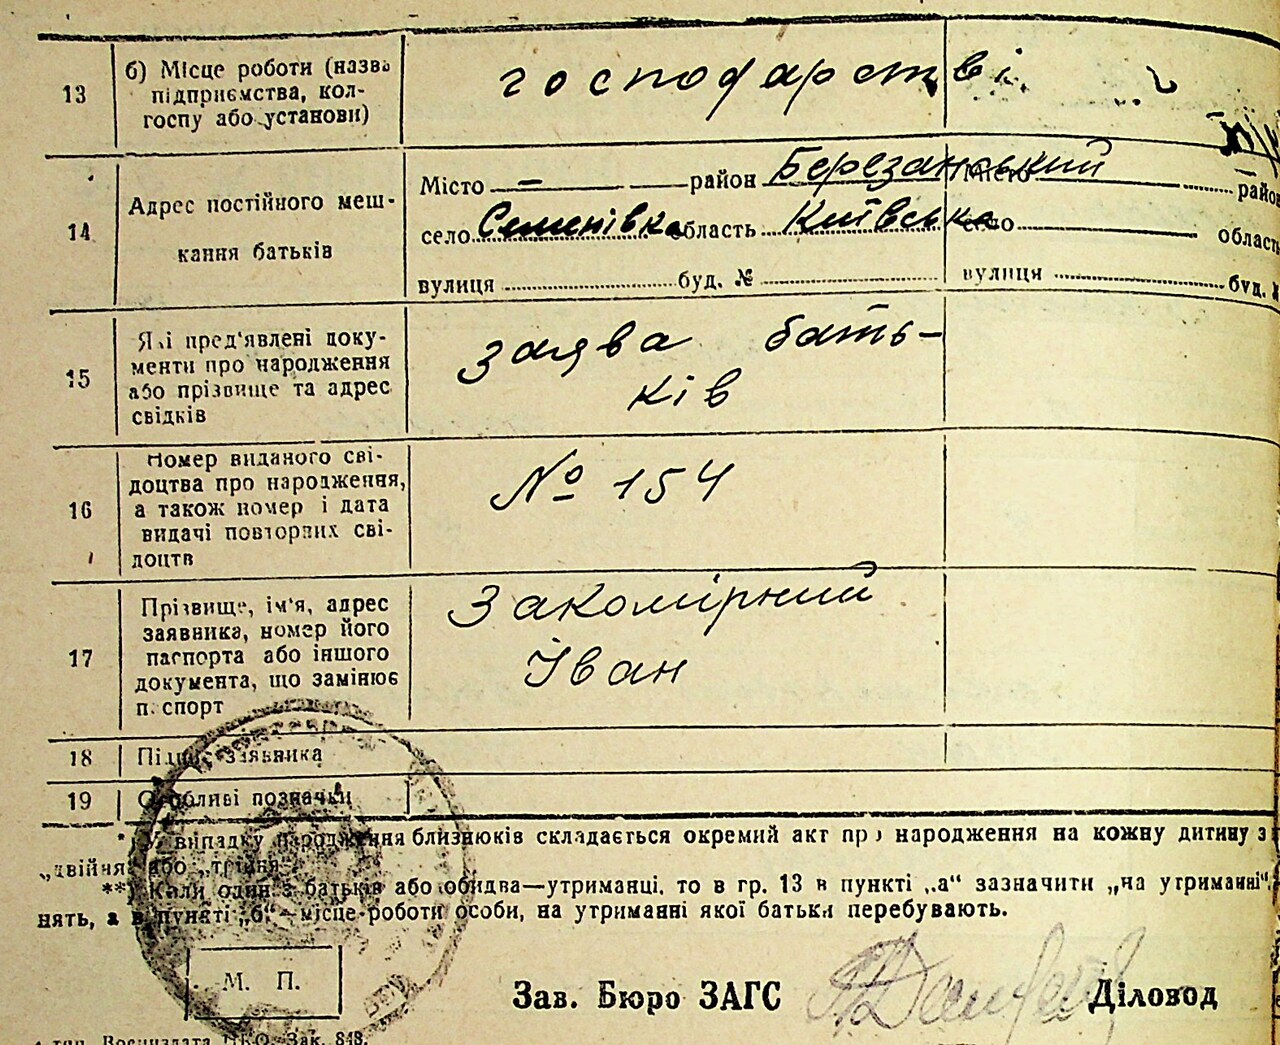 13 б) Місце роботи (назва підприємства, колгоспу або установи) господарстві
14 Адрес постійного меш-
кання батьків
Місто — район Березанський Місто район
село Семенівка область Київська село область
вулиця буд. № вулиця буд. №
15 Які пред'явлені доку-
менти про народження
або прізвище та адрес
свідків
заява бать-
ків
16 Номер виданого сві-
доцтва про народження,
а також номер і дата
видачі повторних сві-
доцтв
№ 154
17 Прізвище, ім'я, адрес
заявника, номер його
паспорта або іншого
документа, що замінює
паспорт
Закомірний
Іван
18 Підпис заявника
19 Особливі позначки
*) У випадку народження близнюків складається окремий акт про народження на кожну дитину з
„двійня" або „трійня"
**) Коли один з батьків або обидва—утриманці, то в гр. 13 в пункті „а" зазначити „на утриманні"
нять, а в пункті „б"—місце роботи особи, на утриманні якої батьки перебувають.
М. П.
Зав. Бюро ЗАГС Діловод
Зак. 848.